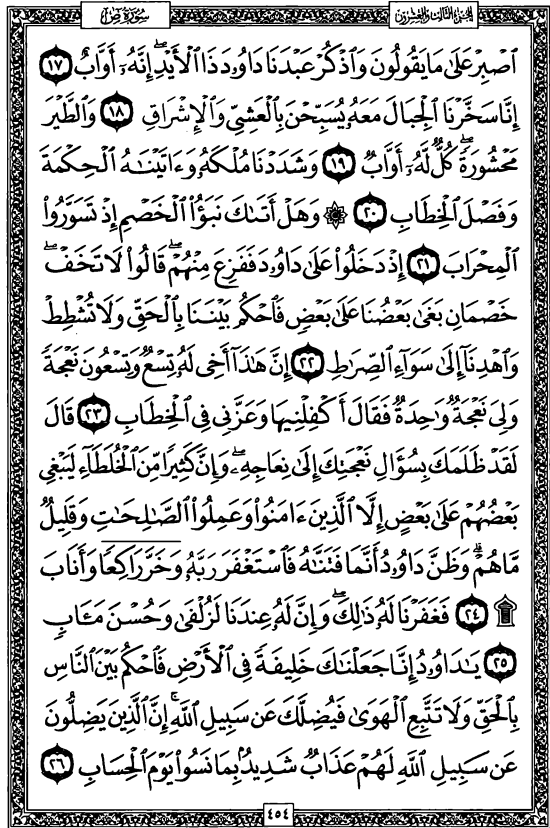 الجزء الثالث والعشرون
سُورَةُ صٓ
ٱصۡبِرۡ عَلَىٰ مَا يَقُولُونَ وَٱذۡكُرۡ عَبۡدَنَا دَاوُۥدَ ذَا ٱلۡأَيۡدِۖ إِنَّهُۥٓ أَوَّابٌ ١٧
إِنَّا سَخَّرۡنَا ٱلۡجِبَالَ مَعَهُۥ يُسَبِّحۡنَ بِٱلۡعَشِيِّ وَٱلۡإِشۡرَاقِ ١٨ وَٱلطَّيۡرَ
مَحۡشُورَةٗۖ كُلّٞ لَّهُۥٓ أَوَّابٞ ١٩ وَشَدَدۡنَا مُلۡكَهُۥ وَءَاتَيۡنَٰهُ ٱلۡحِكۡمَةَ
وَفَصۡلَ ٱلۡخِطَابِ ٢٠ ۞ وَهَلۡ أَتَىٰكَ نَبَؤُاْ ٱلۡخَصۡمِ إِذۡ تَسَوَّرُواْ
ٱلۡمِحۡرَابَ ٢١ إِذۡ دَخَلُواْ عَلَىٰ دَاوُۥدَ فَفَزِعَ مِنۡهُمۡۖ قَالُواْ لَا تَخَفۡۖ
خَصۡمَانِ بَغَىٰ بَعۡضُنَا عَلَىٰ بَعۡضٖ فَٱحۡكُم بَيۡنَنَا بِٱلۡحَقِّ وَلَا تُشۡطِطۡ
وَٱهۡدِنَآ إِلَىٰ سَوَآءِ ٱلصِّرَٰطِ ٢٢ إِنَّ هَٰذَآ أَخِي لَهُۥ تِسۡعٞ وَتِسۡعُونَ نَعۡجَةٗ
وَلِيَ نَعۡجَةٞ وَٰحِدَةٞ فَقَالَ أَكۡفِلۡنِيهَا وَعَزَّنِي فِي ٱلۡخِطَابِ ٢٣ قَالَ
لَقَدۡ ظَلَمَكَ بِسُؤَالِ نَعۡجَتِكَ إِلَىٰ نِعَاجِهِۦۖ وَإِنَّ كَثِيرٗا مِّنَ ٱلۡخُلَطَآءِ لَيَبۡغِي
بَعۡضُهُمۡ عَلَىٰ بَعۡضٍ إِلَّا ٱلَّذِينَ ءَامَنُواْ وَعَمِلُواْ ٱلصَّٰلِحَٰتِ وَقَلِيلٞ
مَّا هُمۡۗ وَظَنَّ دَاوُۥدُ أَنَّمَا فَتَنَّٰهُ فَٱسۡتَغۡفَرَ رَبَّهُۥ وَخَرَّۤ رَاكِعٗاۤ وَأَنَابَ
۩ ٢٤ فَغَفَرۡنَا لَهُۥ ذَٰلِكَۖ وَإِنَّ لَهُۥ عِندَنَا لَزُلۡفَىٰ وَحُسۡنَ مَـَٔابٖ
٢٥ يَٰدَاوُۥدُ إِنَّا جَعَلۡنَٰكَ خَلِيفَةٗ فِي ٱلۡأَرۡضِ فَٱحۡكُم بَيۡنَ ٱلنَّاسِ
بِٱلۡحَقِّ وَلَا تَتَّبِعِ ٱلۡهَوَىٰ فَيُضِلَّكَ عَن سَبِيلِ ٱللَّهِۚ إِنَّ ٱلَّذِينَ يَضِلُّونَ
عَن سَبِيلِ ٱللَّهِ لَهُمۡ عَذَابٞ شَدِيدُۢ بِمَا نَسُواْ يَوۡمَ ٱلۡحِسَابِ ٢٦
٤٥٤